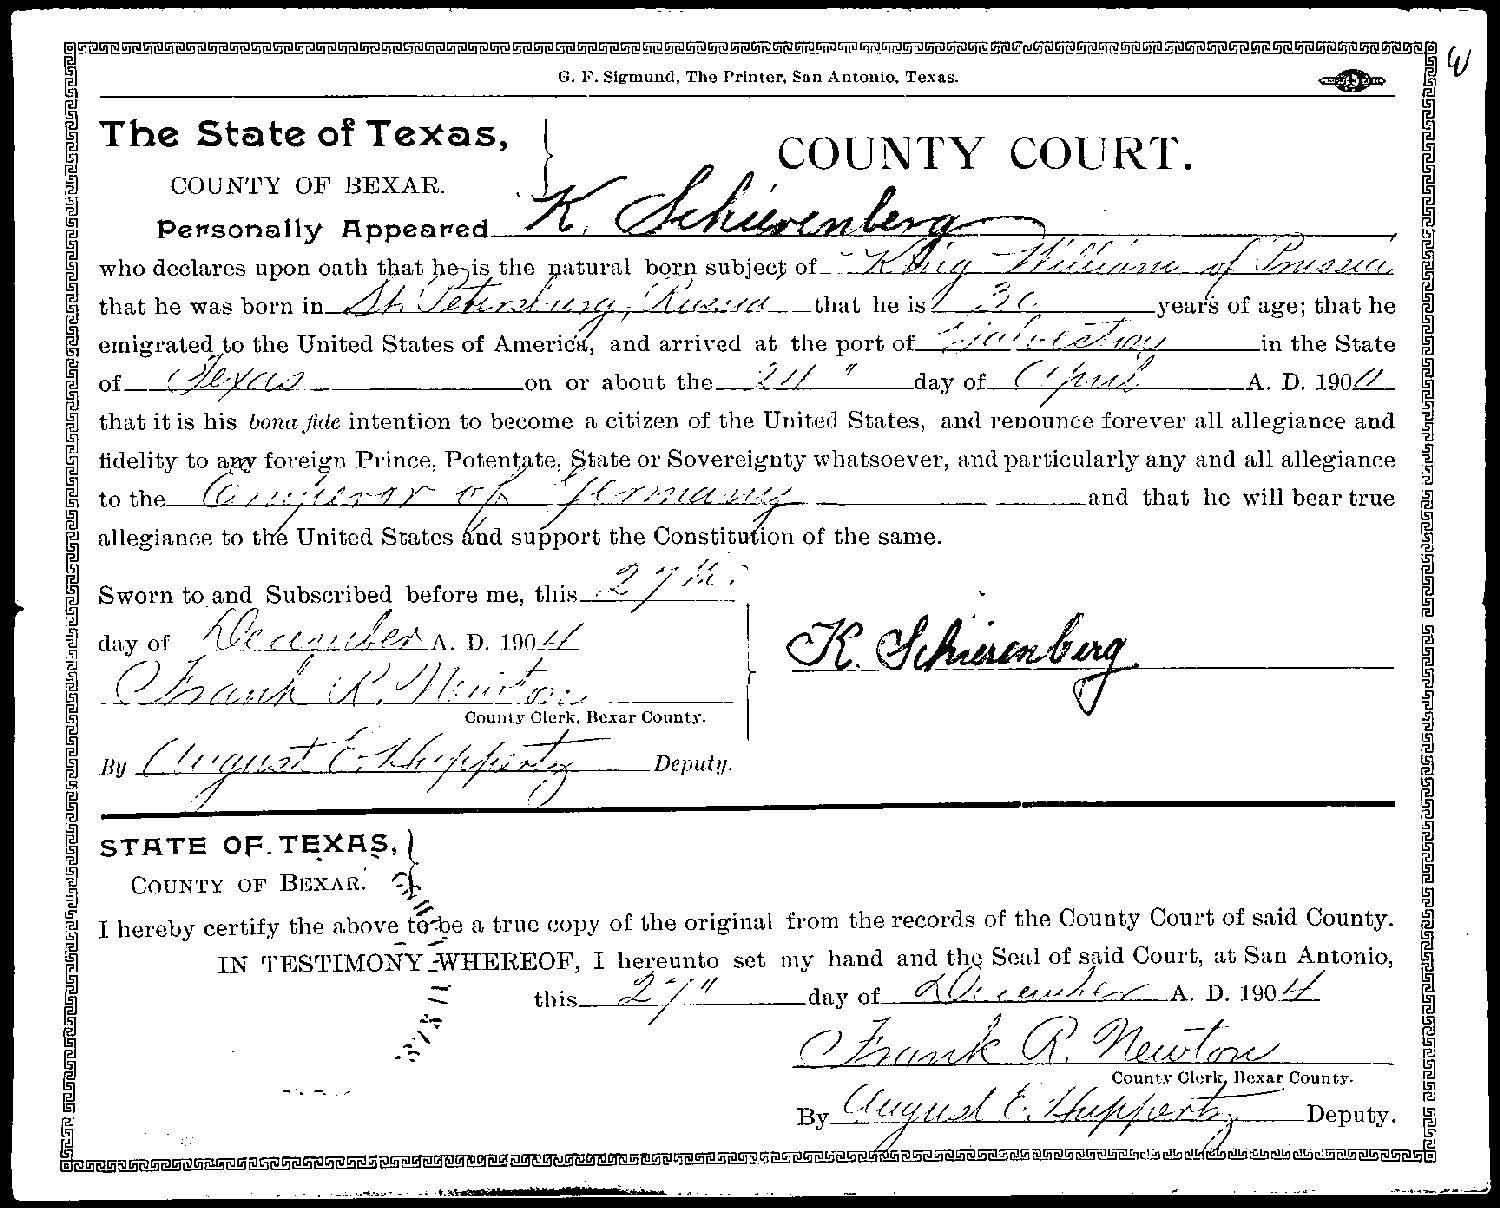 W
G. F. Sigmund, The Printer, San Antonio, Texas.
The State of Texas,
COUNTY COURT.
COUNTY OF BEXAR.
Personally Appeared K. Schierenberg
who declares upon oath that he is the natural born subject of King William of Prussia
that he was born in St. Petersburg, Russia that he is 30 years of age; that he
emigrated to the United States of America, and arrived at the port of Galveston in the State
of Texas on or about the 24" day of April A. D. 1904
that it is his bona fide intention to become a citizen of the United States, and renounce forever all allegiance and
fidelity to any foreign Prince, Potentate, State or Sovereignty whatsoever, and particularly any and all allegiance
to the Emperor of Germany and that he will bear true
allegiance to the United States and support the Constitution of the same.
Sworn to and Subscribed before me, this 27th
day of December A. D. 1904
K. Schierenberg
Frank R. Newton
County Clerk, Bexar County.
By August E. Huppertz Deputy.
STATE OF TEXAS,
COUNTY OF BEXAR.
I hereby certify the above to be a true copy of the original from the records of the County Court of said County.
IN TESTIMONY WHEREOF, I hereunto set my hand and the Seal of said Court, at San Antonio,
this 27" day of December A. D. 1904
Frank R. Newton
County Clerk, Bexar County.
By August E. Huppertz Deputy.